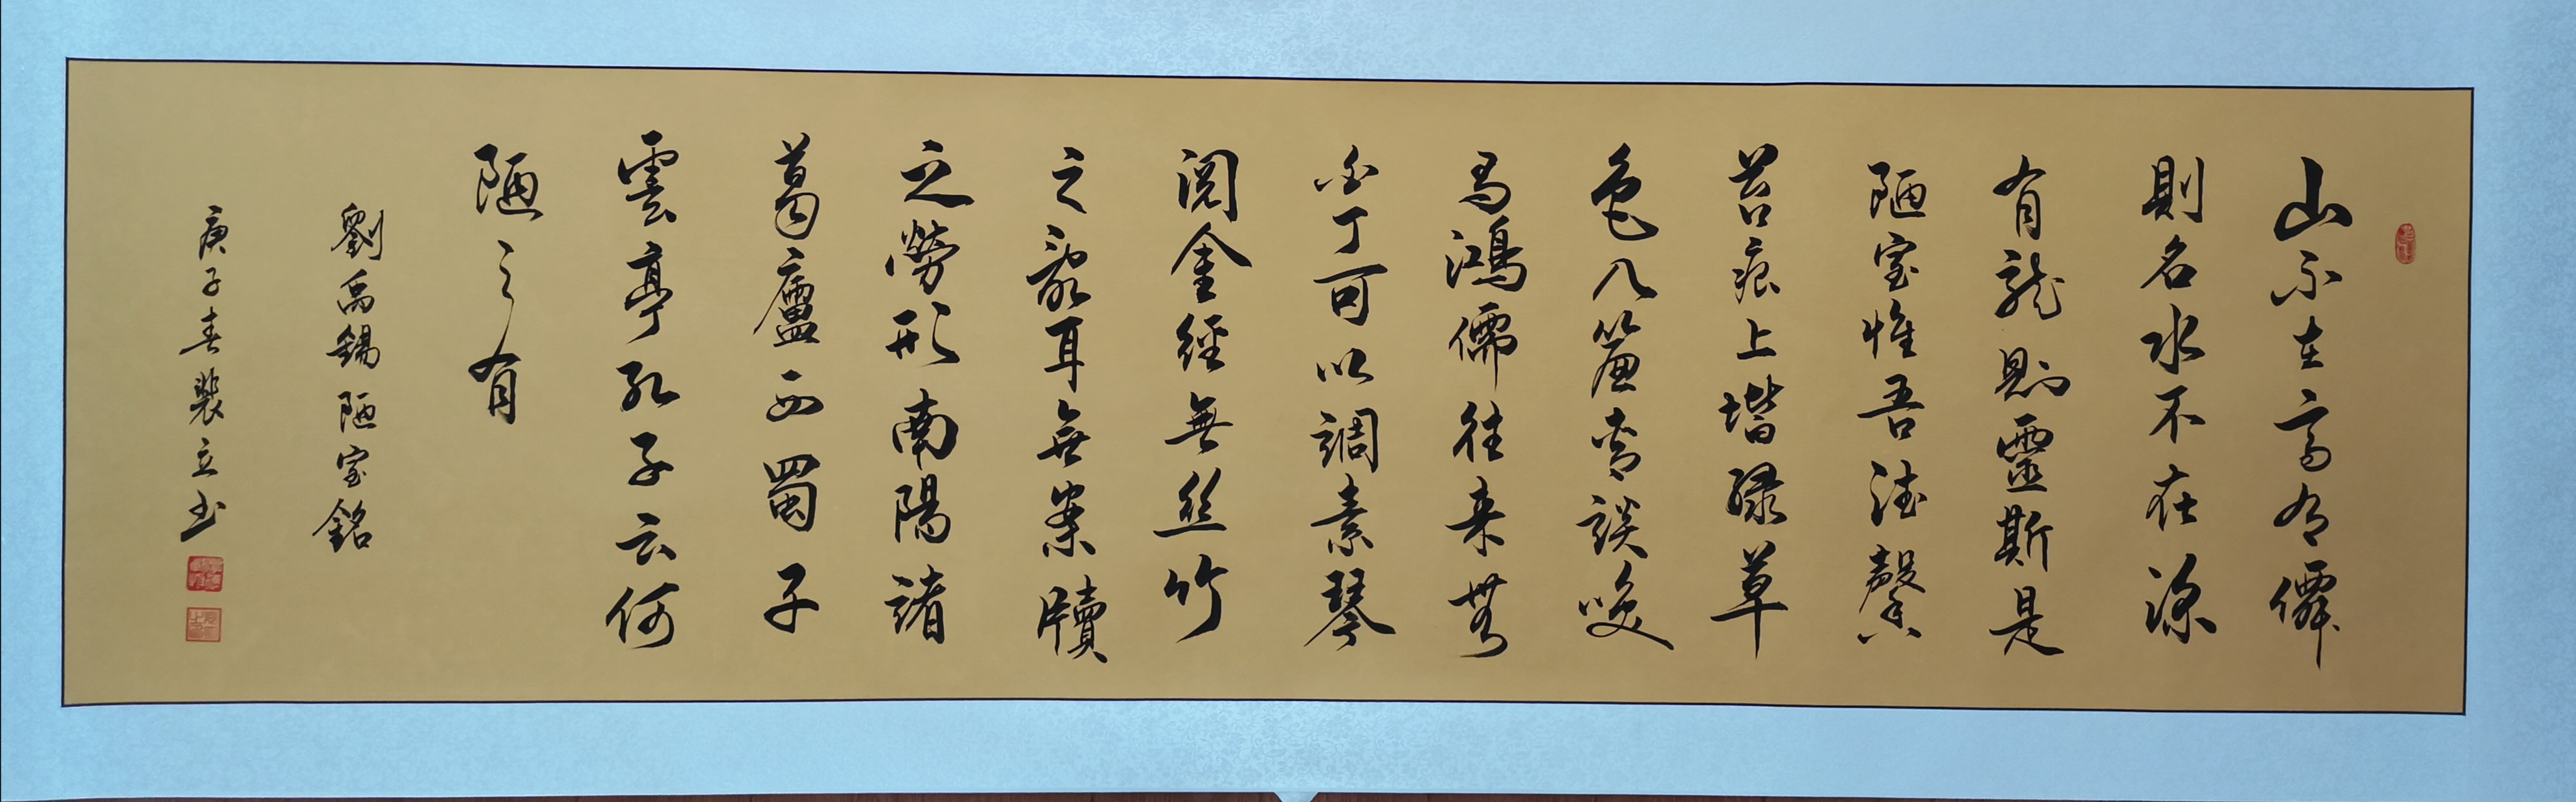 山不在高有僊
則名水不在深
有龍則靈斯是
陋室惟吾德馨
苔痕上堦緑草
色入簾青談咲
有鴻儒往来無
白丁可以調素琴
閲金經無丝竹
之亂耳無案牘
之勞形南陽諸
葛廬西蜀子
雲亭孔子云何
陋之有
劉禹錫陋室銘
庚子春裴立书